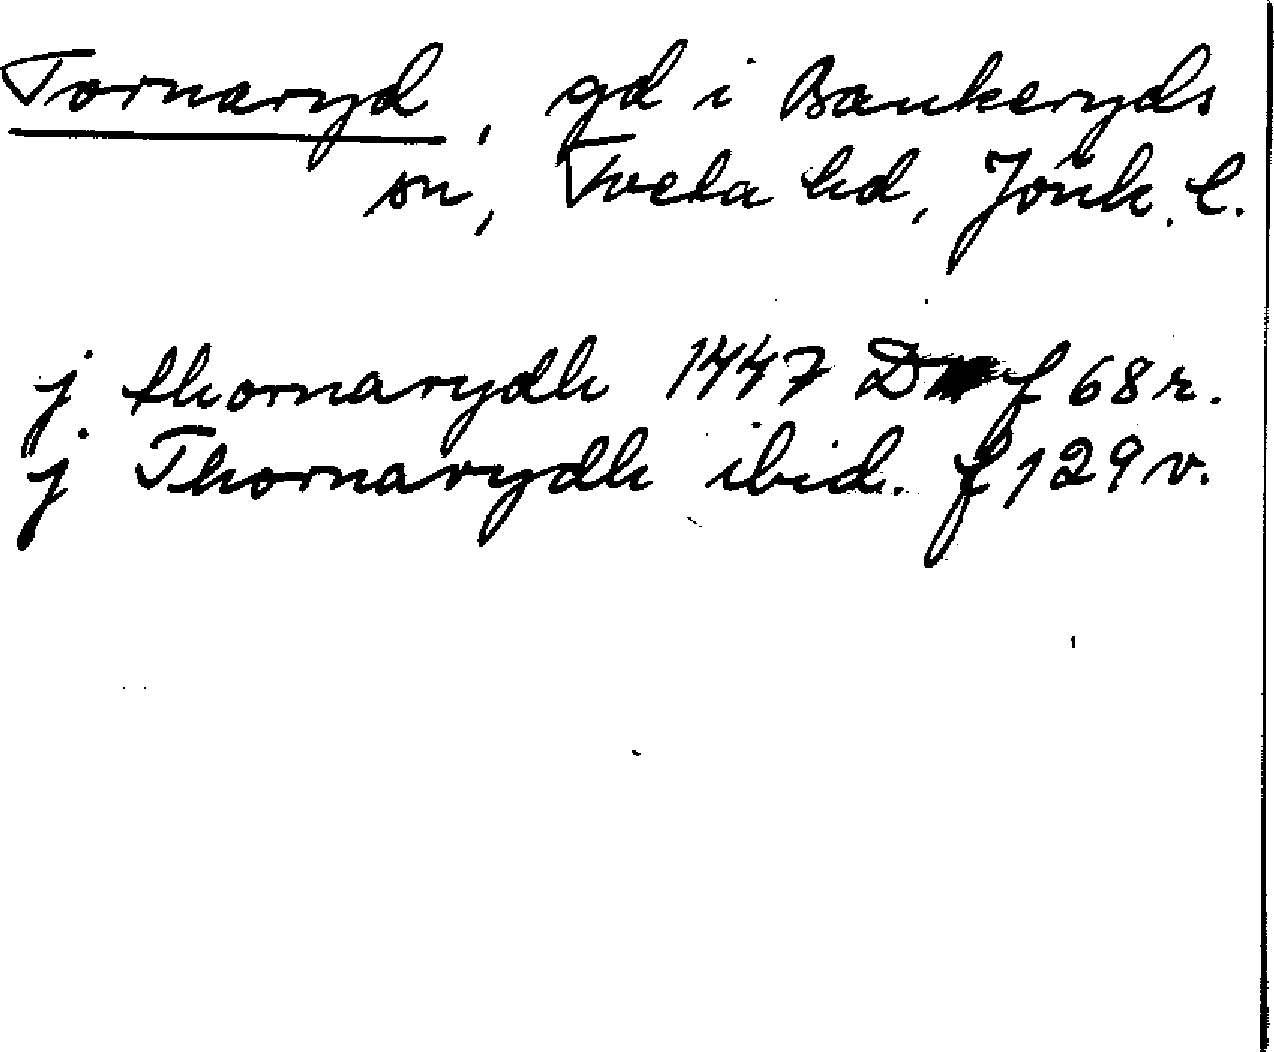 Tornaryd, gd i Bankeryds
sn, Tveta hd, Jönk. l.
j thornarydh 1447 D f 68 r.
j Thornarydh ibid. f 129 v.